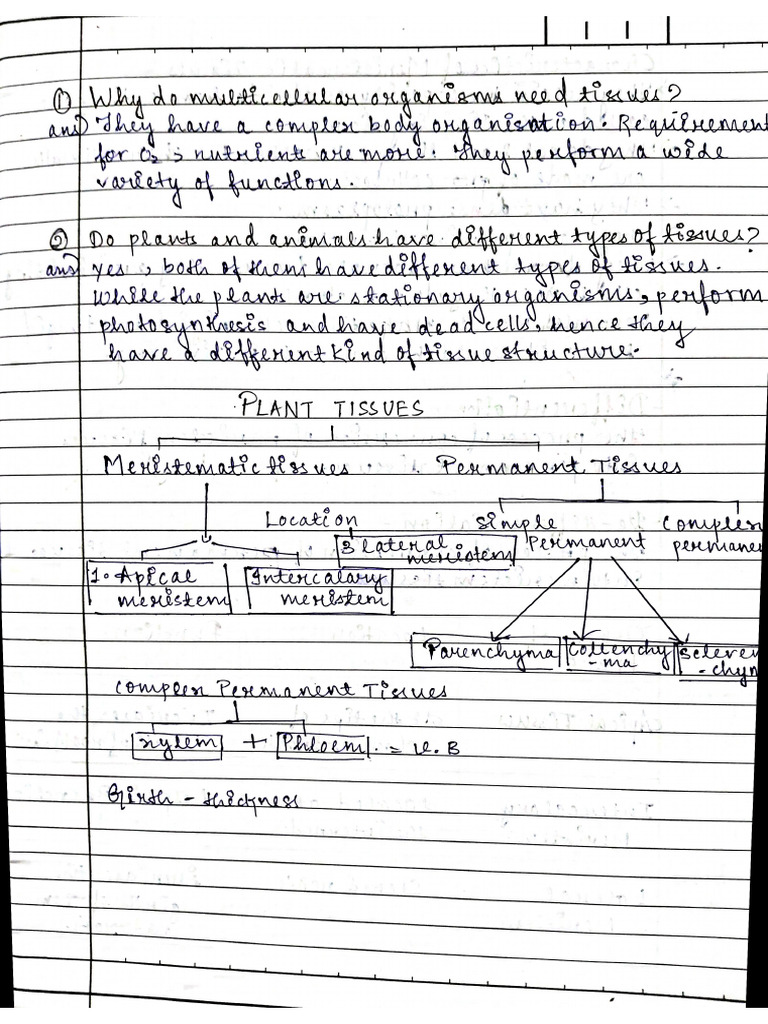 ① Why do multicellular organisms need tissues?
ans) They have a complex body organisation. Requirement
for O2, nutrients are more. They perform a wide
variety of functions.
② Do plants and animals have different types of tissues?
ans) yes, both of them have different types of tissues.
While the plants are stationary organisms, perform
photosynthesis and have dead cells, hence they
have a different kind of tissue structure.
PLANT TISSUES
Meristematic tissues Permanent Tissues
Location Simple Complex
3 lateral meristem Permanent permane
1. Apical meristem Intercalary meristem
Parenchyma Collenchy-ma Scleren-chym
Complex Permanent Tissues
xylem + Phloem = V.B
Girth - thickness